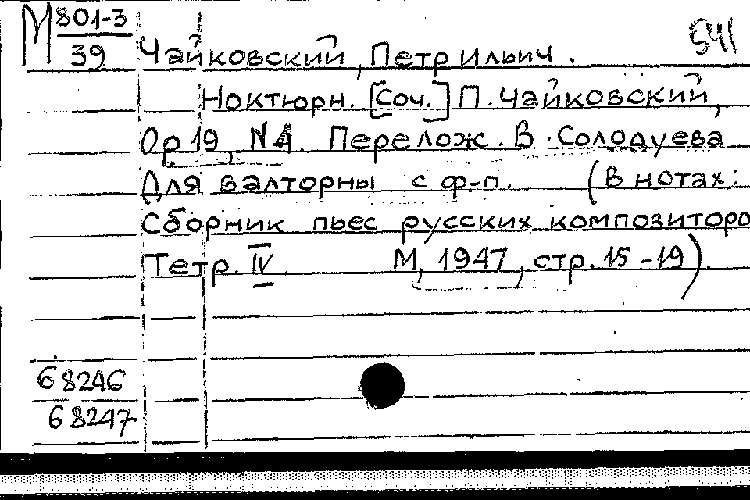 М 801-3
39
541
Чайковский, Петр Ильич.
Ноктюрн. [Соч.] П. Чайковский,
Op 19, N4. Перелож. В. Солодуева
Для валторны с ф-п. (В нотах:
Сборник пьес русских композиторо
Тетр. IV М, 1947, стр. 15-19).
68246
68247